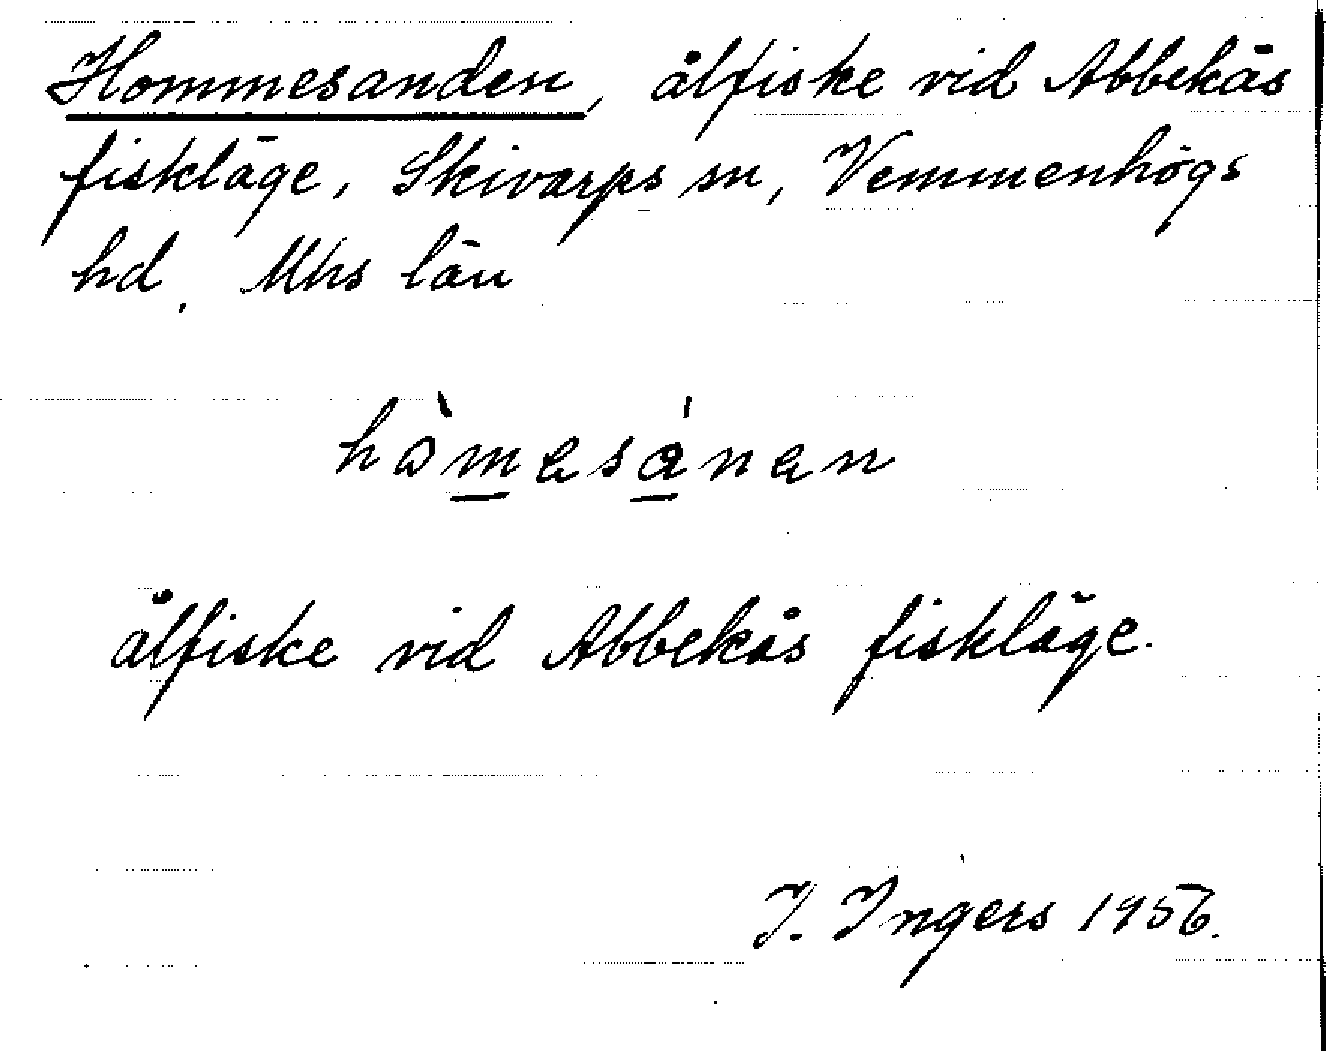 Hommesanden, ålfiske vid Abbekås
fiskläge, Skivarps sn, Vemmenhögs
hd, Mhs län
hòmesánen
ålfiske vid Abbekås fiskläge.
I. Ingers 1956.